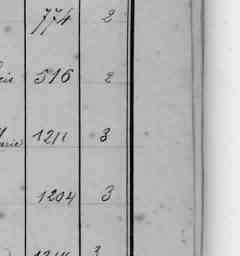 774 2
516 2
1211 3
1204 3
3